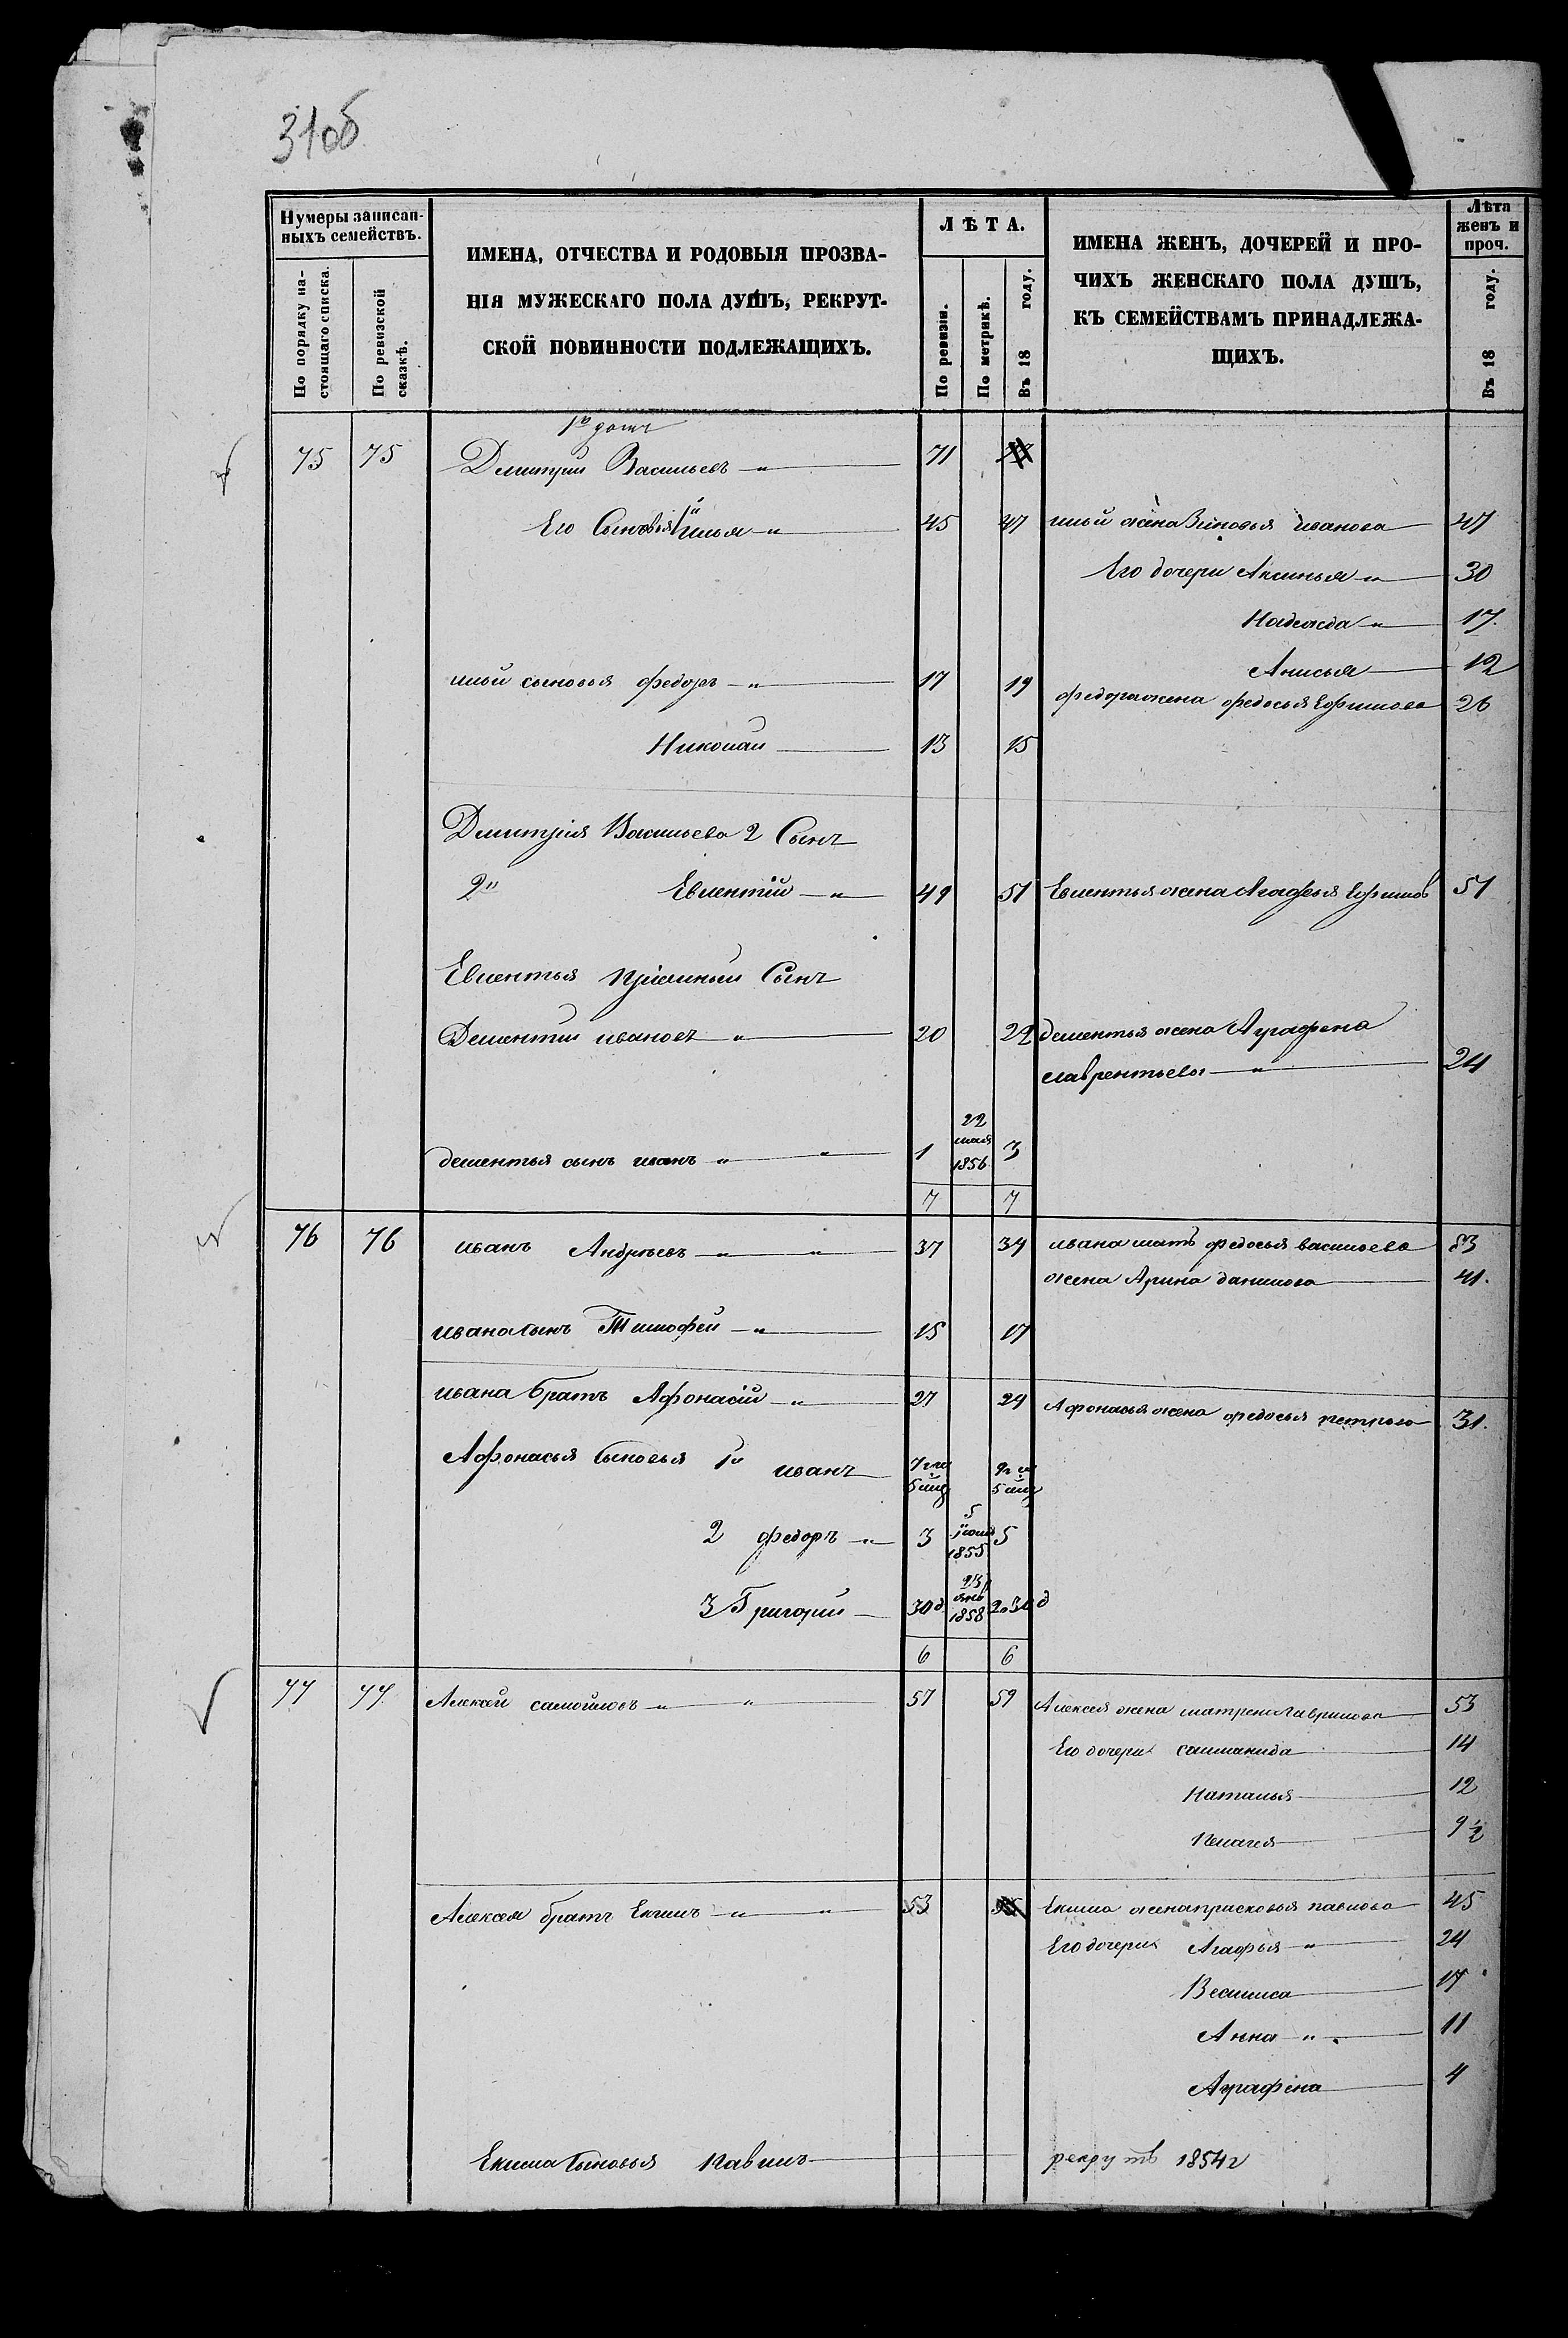 31об
Нумеры записан-
ныхъ семействъ.
По порядку на-
стоящаго списка.
По ревизской
сказкѣ.
ИМЕНА, ОТЧЕСТВА И РОДОВЫЯ ПРОЗВА-
НІЯ МУЖЕСКАГО ПОЛА ДУШЪ, РЕКРУТ-
СКОЙ ПОВИННОСТИ ПОДЛЕЖАЩИХЪ.
ЛѢТА.
По ревизіи.
По метрикѣ.
Въ 18 году.
ИМЕНА ЖЕНЪ, ДОЧЕРЕЙ И ПРО-
ЧИХЪ ЖЕНСКАГО ПОЛА ДУШЪ,
КЪ СЕМЕЙСТВАМЪ ПРИНАДЛЕЖА-
ЩИХЪ.
Лѣта
женъ и
проч.
Въ 18 году.
75 75 Дмитрий Васильевъ 71
Его Сыновья илья 45 47 ильи жена Зиновья иванова 47
Его дочери Аксинья 30
Надежда 17
Анисья 12
ильи сыновья федоръ 17 19 федора жена федосья Ефимова 26
Николай 13 15
Дмитрія Васильева 2 Сынъ
2й Евлентій 49 51 Евлентья жена Агафья Ефимов 51
Евлентья пріемный Сынъ
Дементий ивановъ 20 22 дементья жена Аграфена
лаврентьева 24
дементья сынъ иванъ 1 22 мая 1856 3
7 7
76 76 иванъ Андреевъ 37 39 ивана мать федосья васильева 83
жена Арина данилова 41.
ивана сынъ Тимофей 15 17
ивана братъ Афонасій 27 29 Афонасья жена федосья петрова 31.
Афонасья сыновья 1й иванъ
2 федоръ 3 5 1855 5
3 Григорий 30 д 1858 2 30 д
6 6
77 77. Алексей самойловъ 57 59 Алексея жена матрена Гаврилова 53
Его дочери саламанида 14
Наталья 12
Пелагея 9 1/2
Алексея братъ Екимъ 53 Екима жена прасковья павлова 45
Его дочери Агафья 24
Василиса 17
Анна 11
Аграфена 4
Екима сыновья павилъ рекрутъ 1854 г